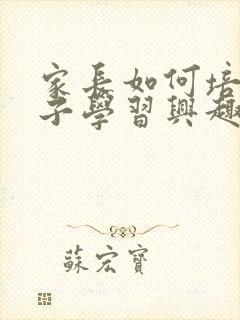 家長如何培
子學習興趣
蘇宏寶